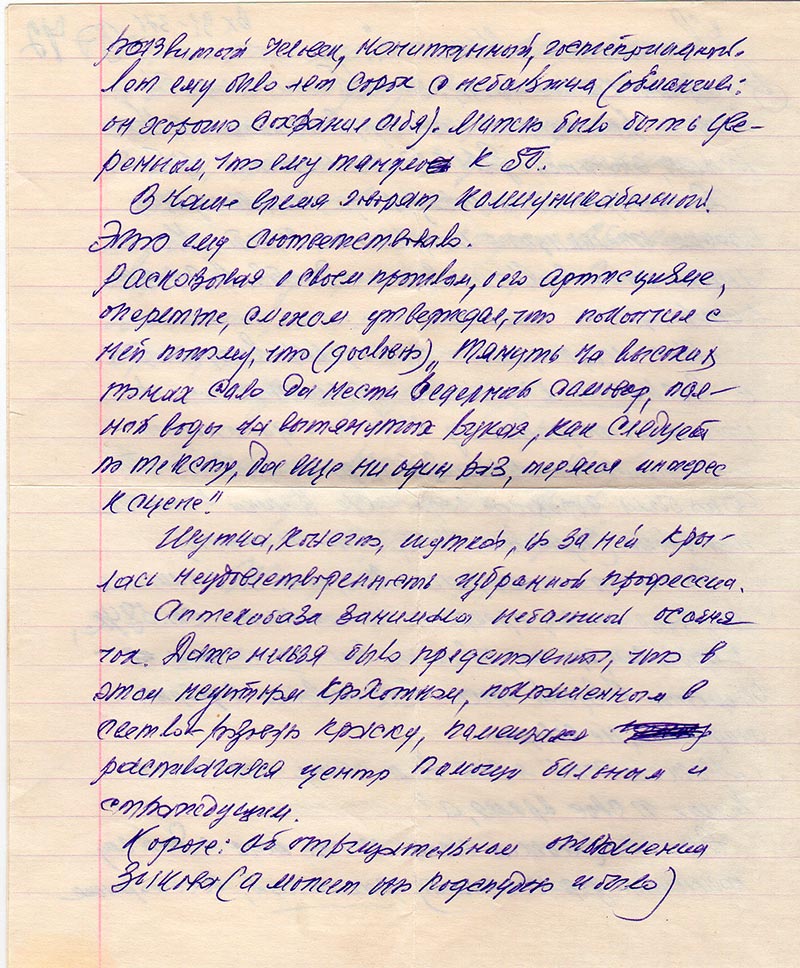 развитый человек, начитанный, гостеприимный.
Лет ему было лет сорок с небольшим (обманчиво:
он хорошо сохранил себя). Можно было быть уве-
ренным, что ему к
В наше время говорят коммуникабельный.
Это ему соответствовало.
Рассказывая о своем прошлом, о его артистизме,
оперетте, смехом утверждал, что покончил с
ней потому, что (дословно) „Тянуть на высоких
тонах соло да нести ведерный самовар, пол-
ный воды на вытянутых руках, как следует
по тексту, да еще ни один раз, теряя интерес
к сцене"
Шутка, конечно, шуткой, но за ней кры-
лась неудовлетворенность избранной профессии.
Аптекобаза занимала небольшой особня-
чок. Даже нельзя было представить, что в
этом неуютном крохотном, покрашенном в
светло-розовую краску,
располагался центр помощи больным и
страждущим.
Короче: об отрицательном отношении
Зыкова (а может оно подспудно и было)